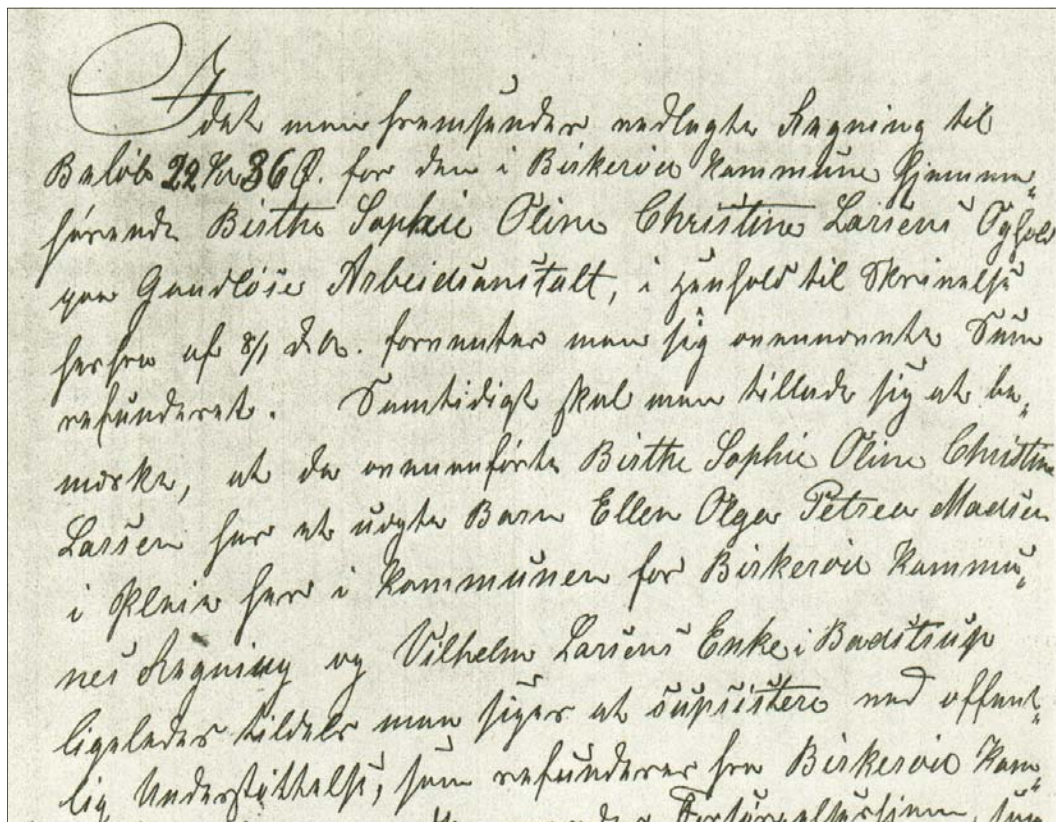 Idet man fremsender vedlagte Regning til
Beløb 22 Kr 36 Ø. for den i Birkerød Kommune hjemme-
hørende Birthe Sophie Oline Christine Larsens Ophold
paa Ganløse Arbeidsanstalt, i Henhold til Skrivelse
herfra af 8/1 d.A. forventer man sig ovennævnte Sum
refunderet. Samtidigt skal man tillade sig at be-
mærke, at da ovenanførte Birthe Sophie Oline Christine
Larsen har et uægte Barn Ellen Olga Petrea Madsen
i Pleie her i Kommunen for Birkerød Kommu-
nes Regning og Vilhelm Larsens Enke i Bastrup
ligeledes tildels maa siges at supsistere ved offent-
lig Understøttelse, som refunderes fra Birkerød Kom-
Forsørgelseshjem, som